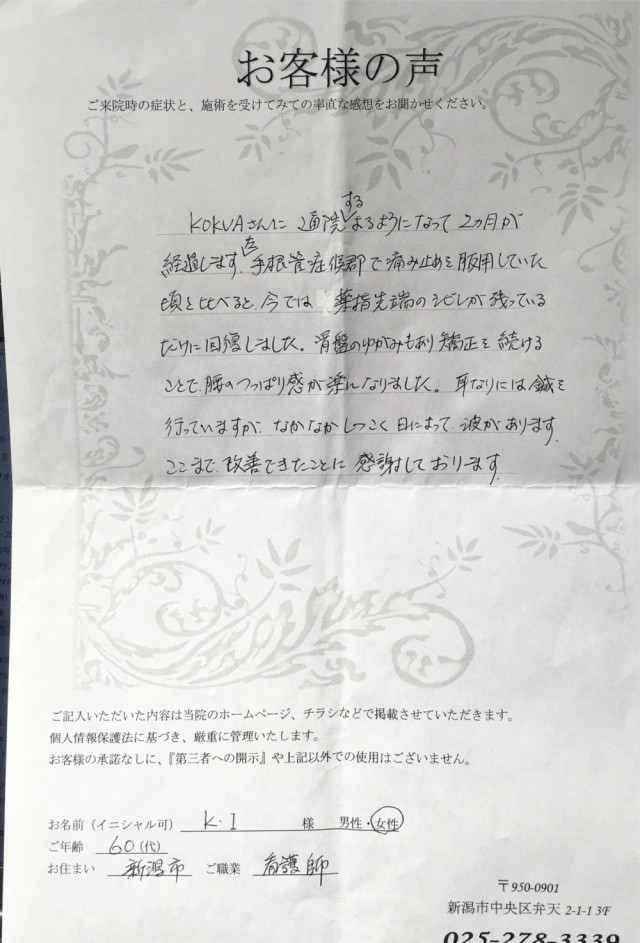 お客様の声
ご来院時の症状と、施術を受けてみての率直な感想をお聞かせください。
KOKUAさんに 通院するようになって 2カ月が
経過します。手根管症候群で痛み止めを服用していた
頃と比べると、今では 薬指先端のシビレが残っている
だけに回復しました。骨盤のゆがみもあり矯正を続ける
ことで、腰のつっぱり感が楽になりました。耳なりには鍼を
行っていますが、なかなかしつこく日によって波があります。
ここまで改善できたことに感謝しております
ご記入いただいた内容は当院のホームページ、チラシなどで掲載させていただきます。
個人情報保護法に基づき、厳重に管理いたします。
お客様の承諾なしに、『第三者への開示』や上記以外での使用はございません。
お名前（イニシャル可） K・I 様 男性・女性
ご年齢 60(代)
お住まい 新潟市 ご職業 看護師
〒950-0901
新潟市中央区弁天 2-1-1 3F
025-278-3339